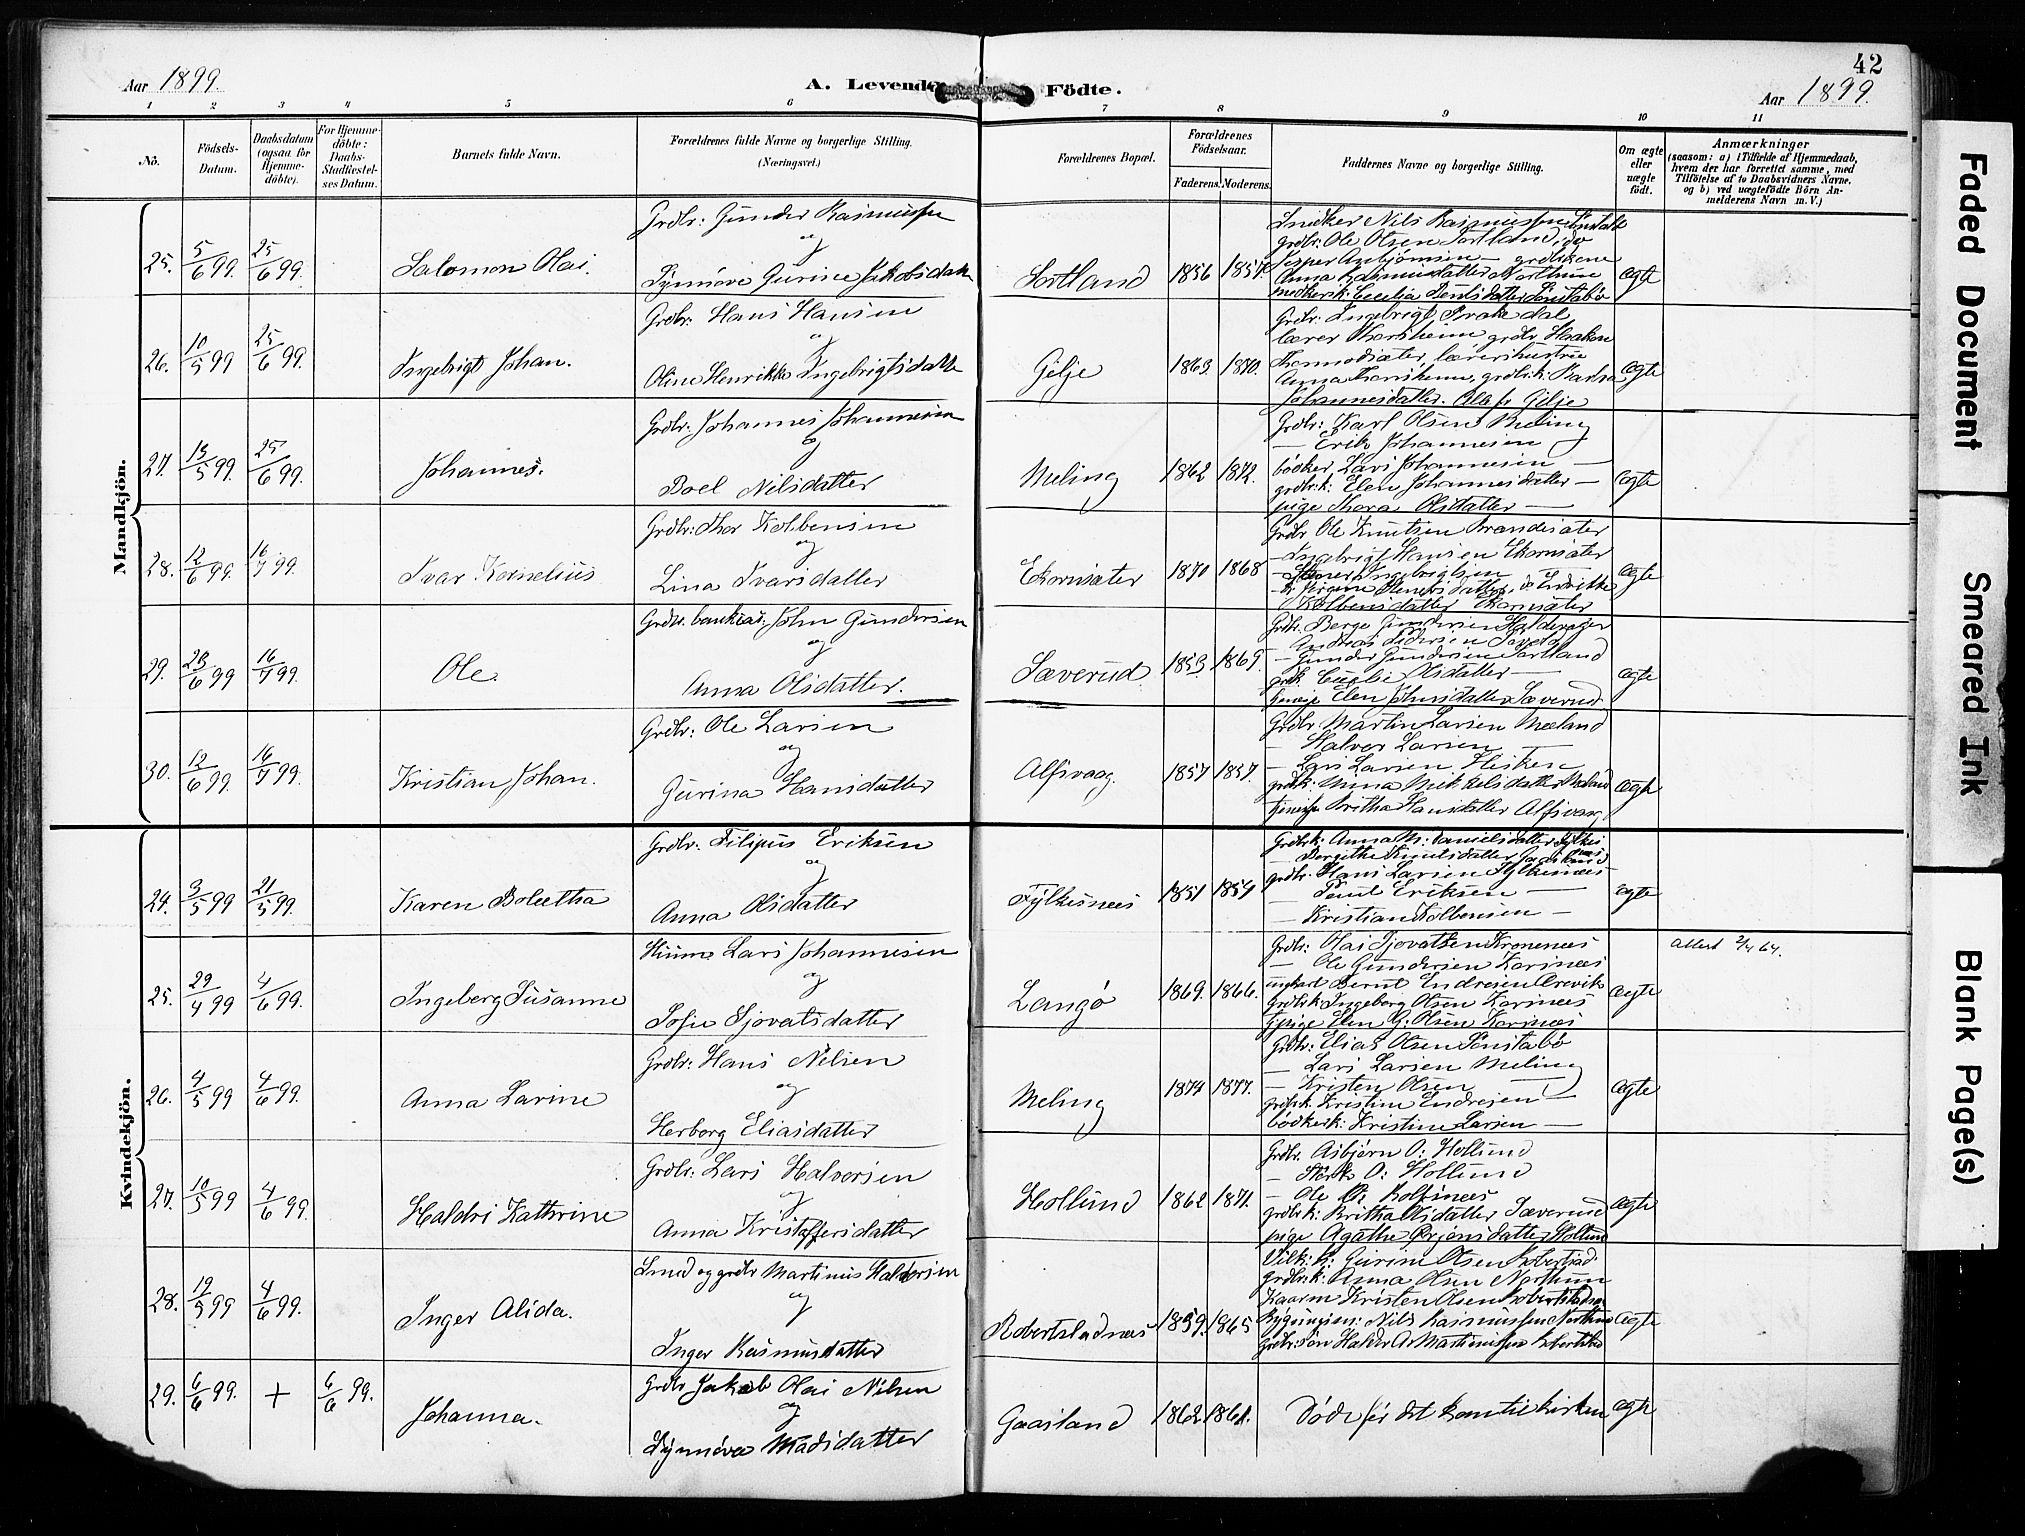 42
Aar 1899.
A. Levende Födte.
Aar 1899.
1 2 3 4 5 6 7 8 9 10 11
No.
Födsels-Datum.
Daabsdatum (ogsaa for Hjemme-döbte).
For Hjemme-döbte: Daabs-Stadfæstel-ses Datum.
Barnets fulde Navn.
Forældrenes fulde Navne og borgerlige Stilling.
(Næringsvei.)
Forældrenes Bopæl.
Forældrenes Födselsaar.
Faderens. Moderens.
Faddernes Navne og borgerlige Stilling.
Om ægte eller uægte födt.
Anmærkninger
(saasom: a) i Tilfælde af Hjemmedaab, hvem der har forrettet samme, med Tilföielse af to Daabsvidners Navne, og b) ved uægtefödte Börn An-melderens Navn m. V.)
Mandkjön.
25. 5/6 99. 25/6 99. Salomon Olai.
Grdbr: Gunder Rasmussen
og
Synnöve Gurine Jakobsdatter
Sortland 1856 1857.
Snedker Nils Rasmussen
grdbr: Ole Olsen Sortland, do
Jesper Asbjörnsen
Anna Rasmusdatter Northune
ægte
26. 10/5 99 25/6 99. Ingebrigt Johan.
Grdbr: Hans Hansen
og
Oline Henrikke Ingebrigtsdatter
Gilje 1863. 1870.
Grdbr: Ingebrigt
lærer Thorsheim, grdbr Haakon
Anna Thorsheim, grdbrk:
Johannesdatter. Alle fr Gilje
ægte
27. 25/6 99. Johannes.
Grdbr: Johannes Johannesen
og
Boel Nilsdatter
Meling 1862 1872.
Grdbr: Karl Olsen Meling
— Erik Johannesen
bödker Lars Johannesen —
grdbr.k: Elen Johannesdatter —
pige Thora Olsdatter —
ægte
28. 12/6 99. 16/7 99. Ivar Kornelius
Grdbr: Thor Kolbensen
og
Lina Ivarsdatter
Ekornsæter 1870 1868
Grdbr Ole Knutsen
— Ingebrigt Hansen Ekornsæter
Kolbensdatter Ekornsæter
ægte
29. 16/7 99. Ole.
Grdbr. bankkas: John Gundersen
og
Anna Olsdatter.
Sæverud 1853 1869.
Grdbr. Berge Gundersen
— Gunder Gundersen Sortland
grdk. Olsdatter —
Elen Johnsdatter Sæverud.
ægte
30. 12/6 99. 16/7 99. Kristian Johan.
Grdbr: Ole Larsen
og
Gurina Hansdatter
Alfsvaag. 1857 1857.
Grdbr. Martin Larsen Mæland
— Halvor Larsen —
— Lars Larsen Hisken
grdbrk: Mina Mikkelsdatter Mæland
Britha Hansdatter Alfsvaag
ægte
Kvindekjön.
24. 3/5 99 21/5 99. Karen Boletha
Grdbr: Filipus Eriksen
og
Anna Olsdatter
Fylkesnæs 1851 1857
Grdbrk: Anna M: Danielsdatter
— Bergithe Knutsdatter
grdbr. Hans Larsen Fylkesnæs
— Eriksen —
— Kristian Kolbensen —
ægte
25. 29/4 99 4/6 99. Ingeberg Susanne
Lars Johannesen
og
Sofie Sjovatsdatter
Langö 1869. 1866.
Grdbr: Olai Sjovatsen Kronenæs
— Ole Gundersen Karinæs
ungkarl Bernt Endresen Urevik
Grdbrk: Ingeborg Olsen Karinæs
Elen G: Olsen Karinæs
ægte
attest 2/4 64.
26. 4/5 99 4/6 99. Anna Larine
Grdbr: Hans Nilsen
og
Herborg Eliasdatter
Meling 1874 1877.
Grdbr: Elias Olsen Sönstabö
— Lars Larsen Meling
— Kristen Olsen —
grdbrk: Kristine Endresen —
bödkerk: Kristine Larsen —
ægte
27. 10/5 99 4/6 99. Haldri Kathrine
Grdbr: Lars Halvorsen
og
Anna Kristoffersdatter
Hollund 1862 1871.
Grdbr. Asbjörn O: Hollund
— O: Hollund
— Ole Rolfsnæs
grdbrk: Britha Olsdatter Sæverud
pige Agathe Hollund
ægte
28. 19/5 99 4/6 99. Inger Alida.
Smed og grdbr Martinus Haldorsen
og
Inger Rasmusdatter
Robertstadnæs 1859. 1865
Gurine Olsen
grdbr.k: Anna Olsen Northun
Kaarm Kristen Olsen
Nils Rasmussen Northun
Martinussen
ægte
29. 6/6 99. + 6/6 99. Johanna.
Grdbr Jakob Olai Nilsen
og
Synnöve Madsdatter
Gaasland 1862. 1861.
Döde för det kom til kirken
ægte
Faded Document
Smeared Ink
Blank Page(s)